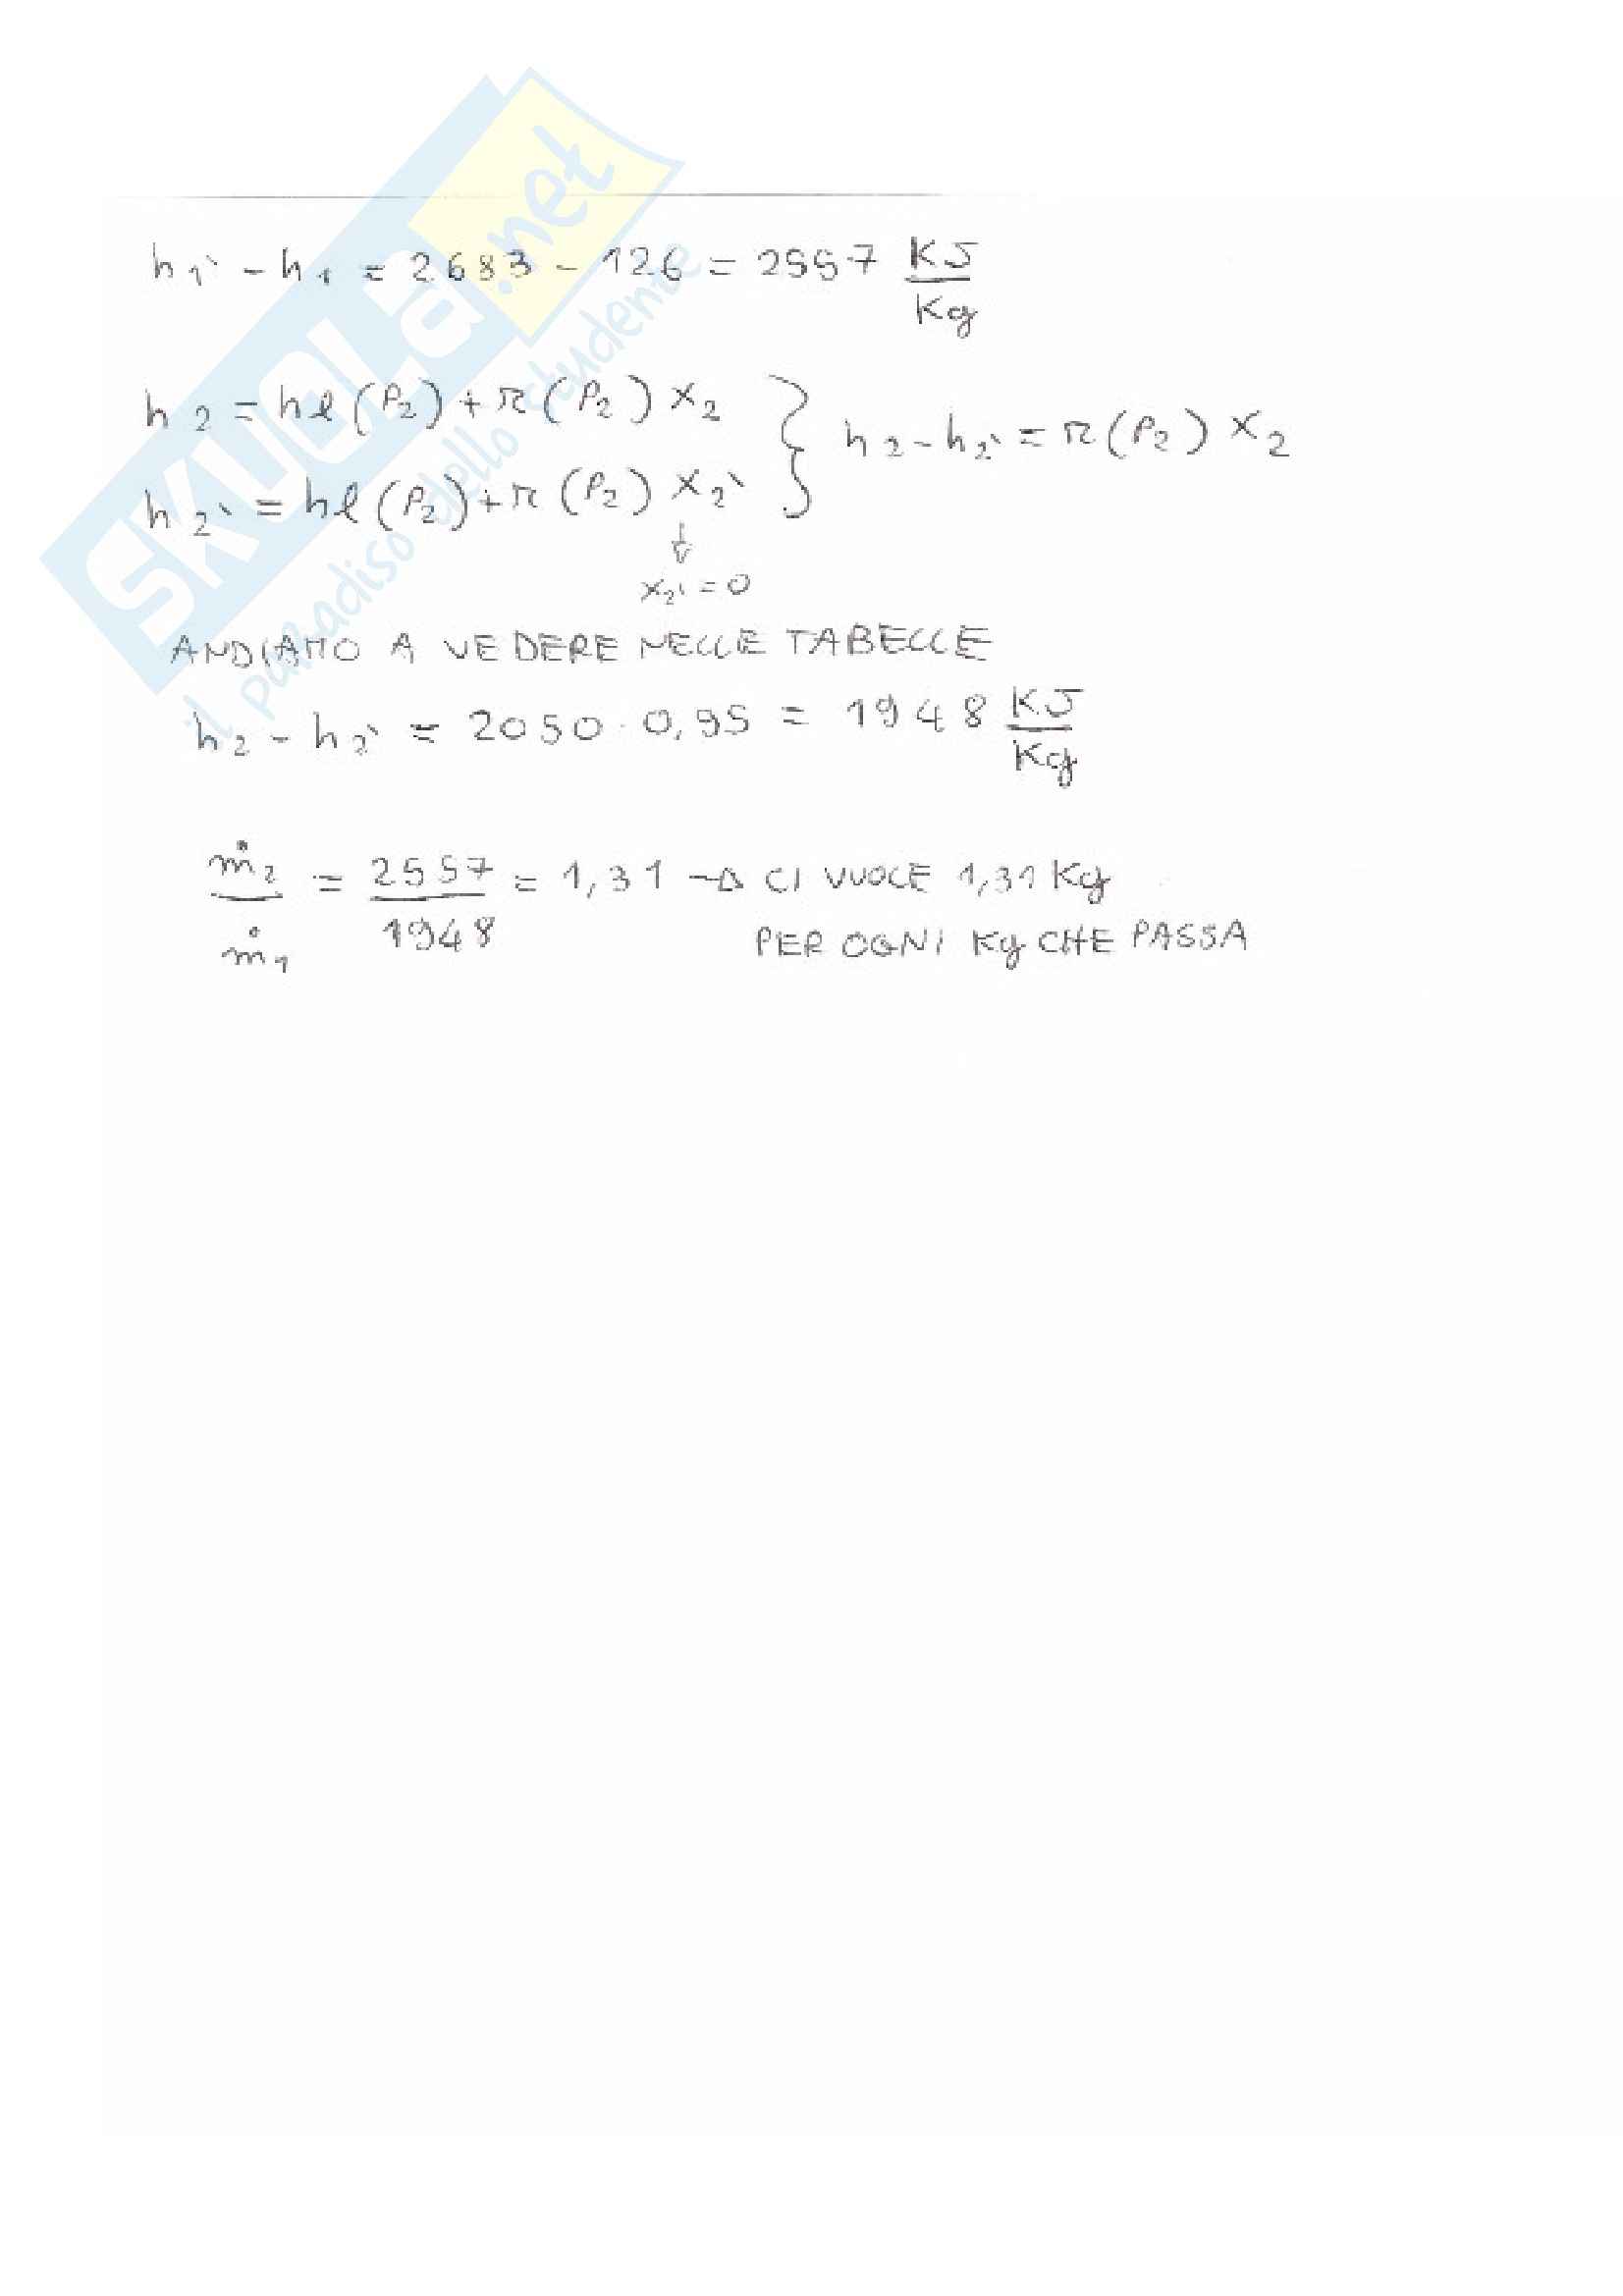 SKUOLA.net
il paradiso dello studente
h1' - h1 = 2683 - 126 = 2557 KJ/Kg
h2 = hl(P2) + r(P2) x2 } h2 - h2' = r(P2) x2
h2' = hl(P2) + r(P2) x2'
↓
x2' = 0
ANDIAMO A VEDERE NELLE TABELLE
h2 - h2' = 2050 · 0,95 = 1948 KJ/Kg
ṁ2/ṁ1 = 2557/1948 = 1,31 → CI VUOLE 1,31 Kg
PER OGNI Kg CHE PASSA